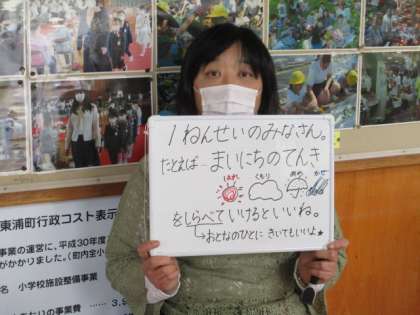 1ねんせいのみなさん。
たとえば…まいにちのてんき
はれ くもり あめ かぜ
をしらべていけるといいね。
おとなのひとに きいてもいいよ★
東浦町行政コスト表示
事業の運営に、平成30年度
がかかりました。(町内全小
名 小学校施設整備事業
たりの事業費 …… 3.9